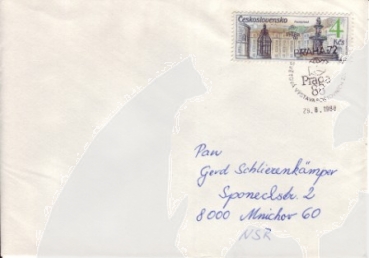 Československo
4
Kčs
PRAHA
Praga
88
25.8.1988
Pan
Gerd Schlierenkämper
Sponeckstr. 2
8000 Mnichov 60
NSR